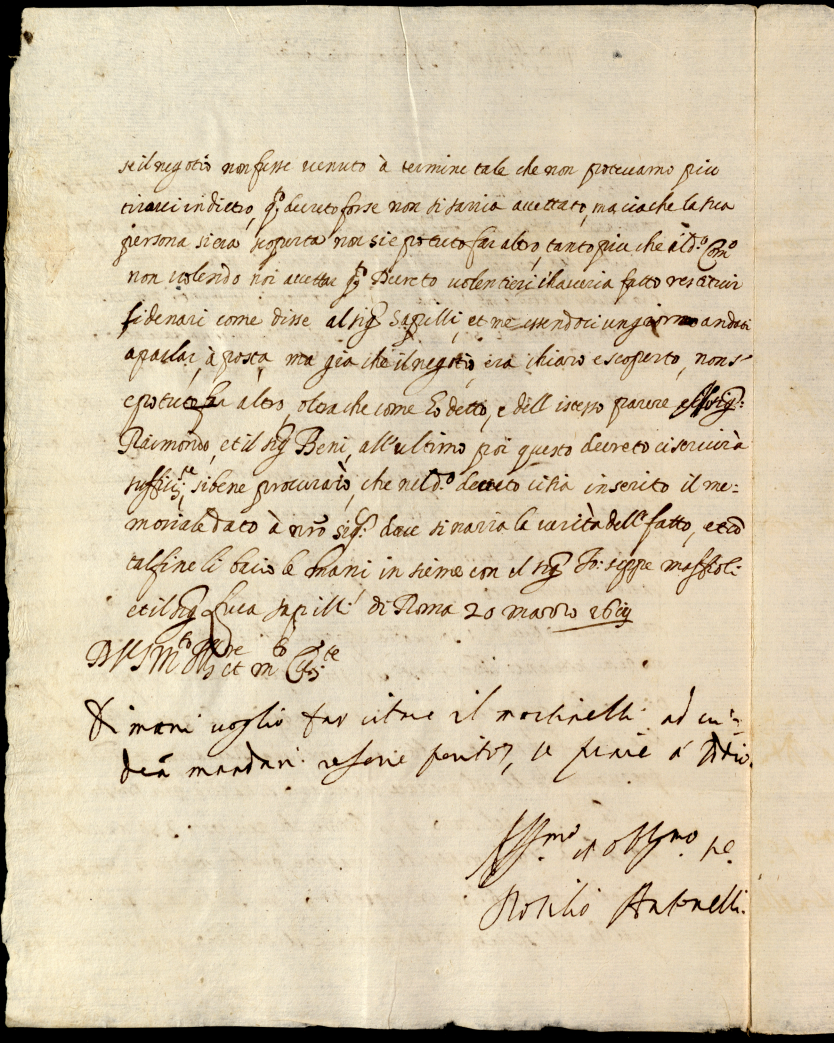 se il negotio non fusse venuto à termine tale che non potevamo più
tirarci indietro, q.to decreto forse non si saria accettato, ma già che la sua
persona si era scoperta non si è potuto far altro, tanto più che il d.o Com.o
non volendo noi accettar q.to Decreto volentieri haveria fatto restituir
li denari come disse al sig.r Sapilli, et me essendoci un giorno andati
a parlar, à posta, ma già che il negotio era chiaro e scoperto, non s'
e potuto far altro, oltra che come ho detto, e dell istesso parere
Raimondo, et il sig.r Beni, all'ultimo poi questo decreto ci servirà
suffic.te, si bene procurarò, che nel d.o decreto ci sia inserito il me=
moriale dato à nr̃o sig.re dove si narra la verità dell fatto, et cõ
tal fine li bacio le mani insieme con il sig.r
et il sig.r Luca Sapilli di Roma 20 marzo
D V S M.to et m.to
Di mani voglio far citare il martinelli ad
à Iddio.
Aff.mo et obblig.mo
Antonelli.